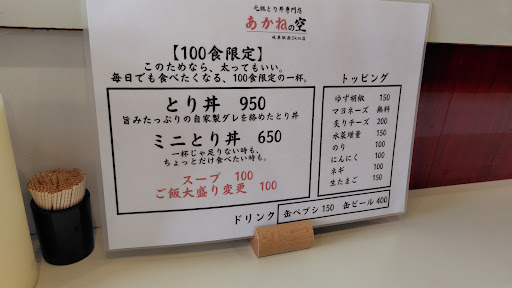 元祖とり丼専門店
あかねの空
【100食限定】
このためなら、太ってもいい。
毎日でも食べたくなる、100食限定の一杯。
とり丼 950
旨みたっぷりの自家製ダレを絡めたとり丼
ミニとり丼 650
一杯じゃ足りない時も、
ちょっとだけ食べたい時も。
スープ 100
ご飯大盛り変更 100
トッピング
ゆず胡椒 150
マヨネーズ 無料
炙りチーズ 200
水菜増量 150
のり 100
にんにく 100
ネギ 100
生たまご 150
ドリンク 缶ペプシ 150 缶ビール 400